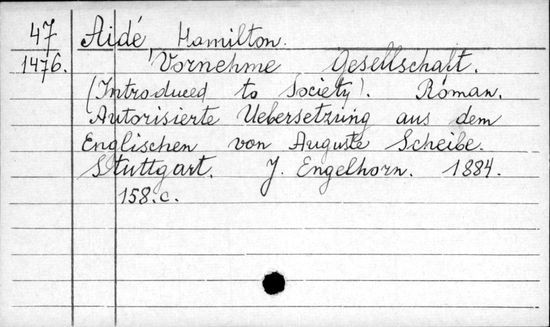 47 Aidé Hamilton.
1476. Vornehme Gesellschaft.
(Introduced to Society). Roman.
Autorisierte Uebersetzung aus dem
Englischen von Auguste Scheibe.
Stuttgart. J. Engelhorn. 1884.
158.c.